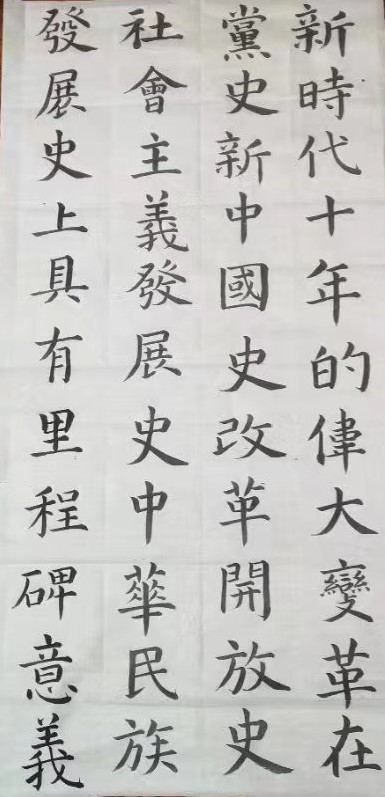 新時代十年的偉大變革在
黨史新中國史改革開放史
社會主義發展史中華民族
發展史上具有里程碑意義